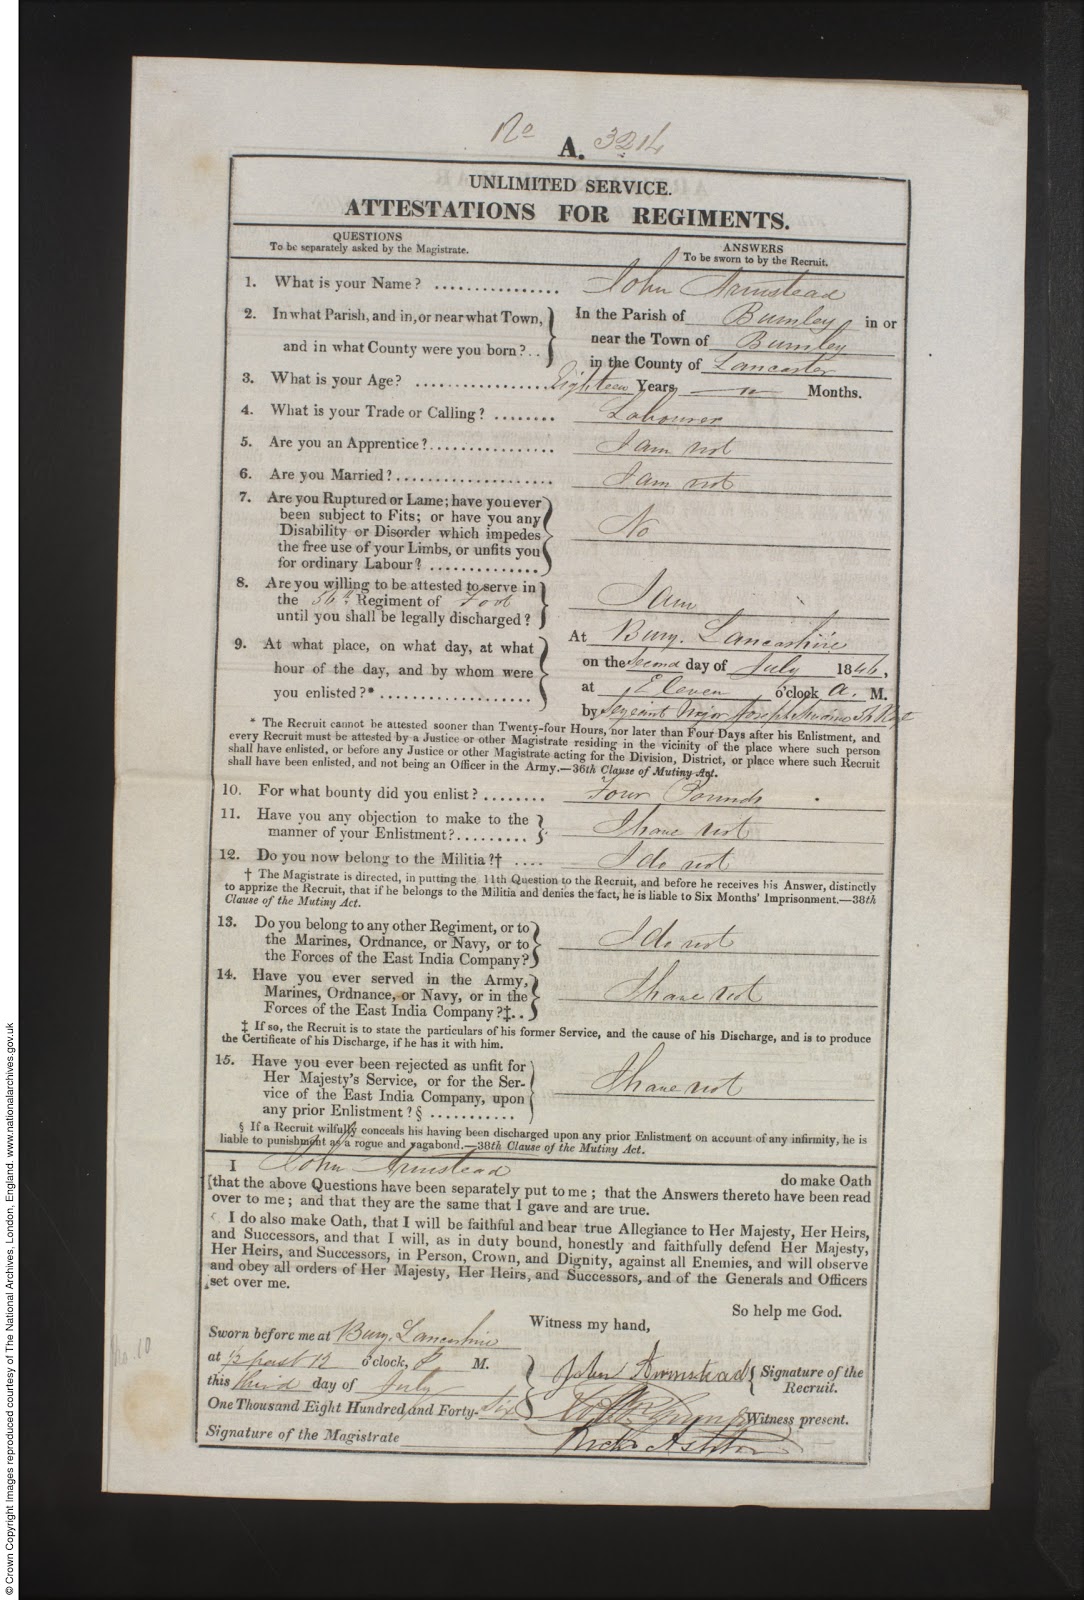 No
A. 3214
UNLIMITED SERVICE.
ATTESTATIONS FOR REGIMENTS.
QUESTIONS
To be separately asked by the Magistrate.
ANSWERS
To be sworn to by the Recruit.
1. What is your Name? ................ John Armstead
2. In what Parish, and in, or near what Town, and in what County were you born?..
In the Parish of Burnley in or
near the Town of Burnley
in the County of Lancaster
3. What is your Age? ................ Eighteen Years, Months.
4. What is your Trade or Calling? ........ Labourer
5. Are you an Apprentice?................ I am not
6. Are you Married?.................... I am not
7. Are you Ruptured or Lame; have you ever
been subject to Fits; or have you any
Disability or Disorder which impedes
the free use of your Limbs, or unfits you
for ordinary Labour? ..............
No
8. Are you willing to be attested to serve in
the 56th Regiment of Foot
until you shall be legally discharged?
I am
9. At what place, on what day, at what
hour of the day, and by whom were
you enlisted?* ...................
At Bury. Lancashire
on the Second day of July 1846,
at Eleven o'clock A. M.
by Sergeant Major Joseph
* The Recruit cannot be attested sooner than Twenty-four Hours, nor later than Four Days after his Enlistment, and
every Recruit must be attested by a Justice or other Magistrate residing in the vicinity of the place where such person
shall have enlisted, or before any Justice or other Magistrate acting for the Division, District, or place where such Recruit
shall have been enlisted, and not being an Officer in the Army.—36th Clause of Mutiny Act.
10. For what bounty did you enlist? ........ Four Pounds
11. Have you any objection to make to the
manner of your Enlistment?.........
I have not
12. Do you now belong to the Militia?† .... I do not
† The Magistrate is directed, in putting the 11th Question to the Recruit, and before he receives his Answer, distinctly
to apprize the Recruit, that if he belongs to the Militia and denies the fact, he is liable to Six Months' Imprisonment.—38th
Clause of the Mutiny Act.
13. Do you belong to any other Regiment, or to
the Marines, Ordnance, or Navy, or to
the Forces of the East India Company?
I do not
14. Have you ever served in the Army,
Marines, Ordnance, or Navy, or in the
Forces of the East India Company?‡..
I have not
‡ If so, the Recruit is to state the particulars of his former Service, and the cause of his Discharge, and is to produce
the Certificate of his Discharge, if he has it with him.
15. Have you ever been rejected as unfit for
Her Majesty's Service, or for the Ser-
vice of the East India Company, upon
any prior Enlistment?§ ...........
I have not
§ If a Recruit wilfully conceals his having been discharged upon any prior Enlistment on account of any infirmity, he is
liable to punishment as a rogue and vagabond.—38th Clause of the Mutiny Act.
I John Armstead do make Oath
that the above Questions have been separately put to me; that the Answers thereto have been read
over to me; and that they are the same that I gave and are true.
I do also make Oath, that I will be faithful and bear true Allegiance to Her Majesty, Her Heirs,
and Successors, and that I will, as in duty bound, honestly and faithfully defend Her Majesty,
Her Heirs, and Successors, in Person, Crown, and Dignity, against all Enemies, and will observe
and obey all orders of Her Majesty, Her Heirs, and Successors, and of the Generals and Officers
set over me.
So help me God.
Witness my hand,
Sworn before me at Bury. Lancashire
at ½ past 12 o'clock, P M.
this third day of July
One Thousand Eight Hundred and Forty-six
Signature of the Magistrate
John Armstead Signature of the Recruit.
Witness present.
Richd Ashton
No. 10
© Crown Copyright Images reproduced courtesy of The National Archives, London, England. www.nationalarchives.gov.uk